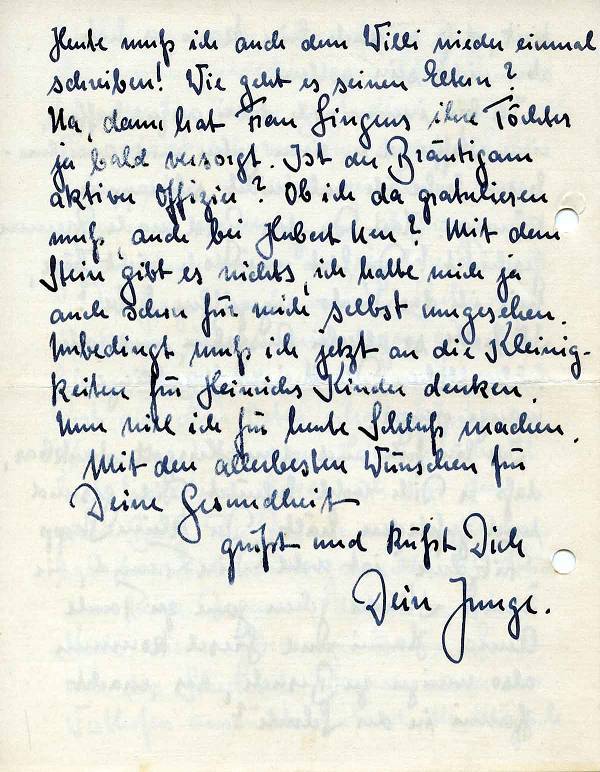 Heute muß ich auch dem Willi wieder einmal
schreiben! Wie geht es seinen Eltern?
Na, dann hat Frau Lingens ihre Töchter
ja bald versorgt. Ist der Bräutigam
aktiver Offizier? Ob ich da gratulieren
muß, auch bei Hubert? Mit dem
Stein gibt es nichts, ich hatte mich ja
auch schon für mich selbst umgesehen.
Unbedingt muß ich jetzt an die Kleinig-
keiten für Heinrichs Kinder denken.
Nun will ich für heute Schluß machen.
Mit den allerbesten Wünschen für
Deine Gesundheit
grüßt und küßt Dich
Dein Junge.